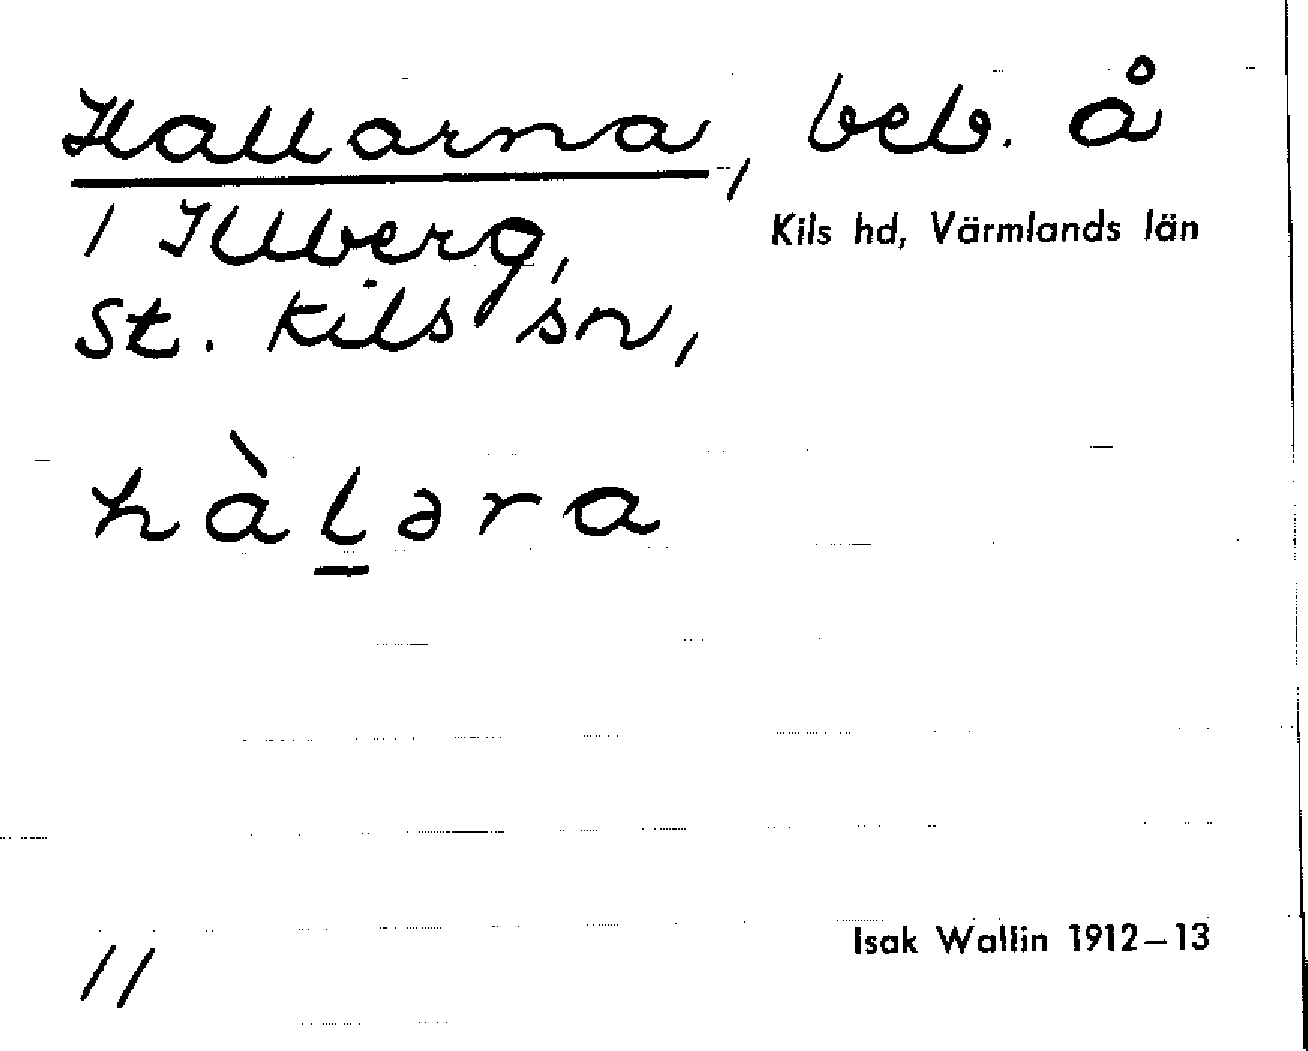 Hallarna, beb. å
1 Illberg,
Kils hd, Värmlands län
St. Kils sn,
hàl̲əra
Isak Wallin 1912–13
11